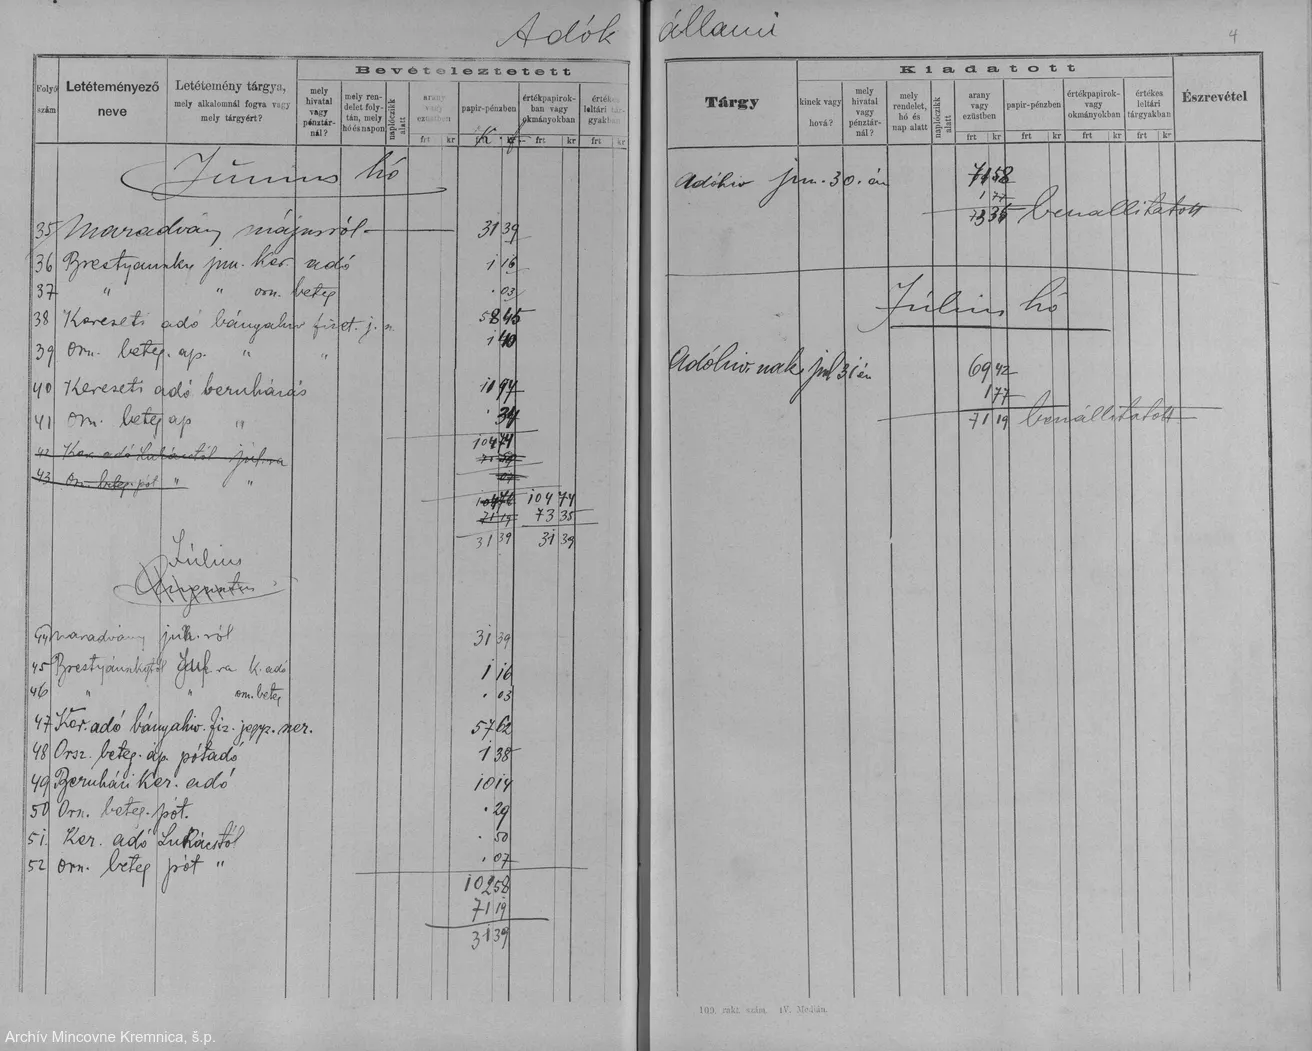 Adók állami
4
Bevételeztetett
Folyó szám
Letéteményező neve
Letétemény tárgya, mely alkalomnál fogva vagy mely tárgyért?
mely hivatal vagy pénztárnál?
mely rendelet folytán, mely hó és napon
naplóczikk alatt
arany vagy ezüstben
papir-pénzben
értékpapirokban vagy okmányokban
értékes leltári tárgyakban
frt kr K. f frt kr frt kr
Június hó
35 Maradvány májusról 31 39
36 Brestyánszky jun. Ker. adó 1 16
37 " " orsz. beteg . 03
38 Kereseti adó bányahiv fizet. j. n. 58 45
39 Orsz. beteg. ap. " " 1 40
40 Kereseti adó beruházás 10 94
41 Orsz. beteg ap " . 34
104 74
42 Ker. adó Lukácstól jul. ra
43 Orsz. beteg. pót " "
07
104 74
73 35
71 19
31 39 31 39
Július
44 Maradvány jun. ról 31 39
45 Brestyánszkytól Jul ra K. adó 1 16
46 " " orsz. beteg . 03
47 Ker. adó bányahiv. fiz. jegyz. szer. 57 62
48 Orsz. beteg. áp. pótadó 1 38
49 Beruházi Ker. adó 10 14
50 Orsz. beteg. pót. . 29
51. Ker. adó Lukácstól . 50
52 Orsz. beteg pót " . 07
102 58
71 19
31 39
Kiadatott
Tárgy
kinek vagy hová?
mely hivatal vagy pénztárnál?
mely rendelet, hó és nap alatt
naplóczikk alatt
arany vagy ezüstben
papir-pénzben
értékpapirok- vagy okmányokban
értékes leltári tárgyakban
Észrevétel
frt kr frt kr frt kr frt kr
Adóhiv jun. 30. án 71 58
1 77
73 35 benallitatott
Július hó
Adóhiv. nak jul 31 én 69 42
1 77
71 19 benállitatott
109. rakt. szám. IV. Medián.
Archív Mincovne Kremnica, š.p.